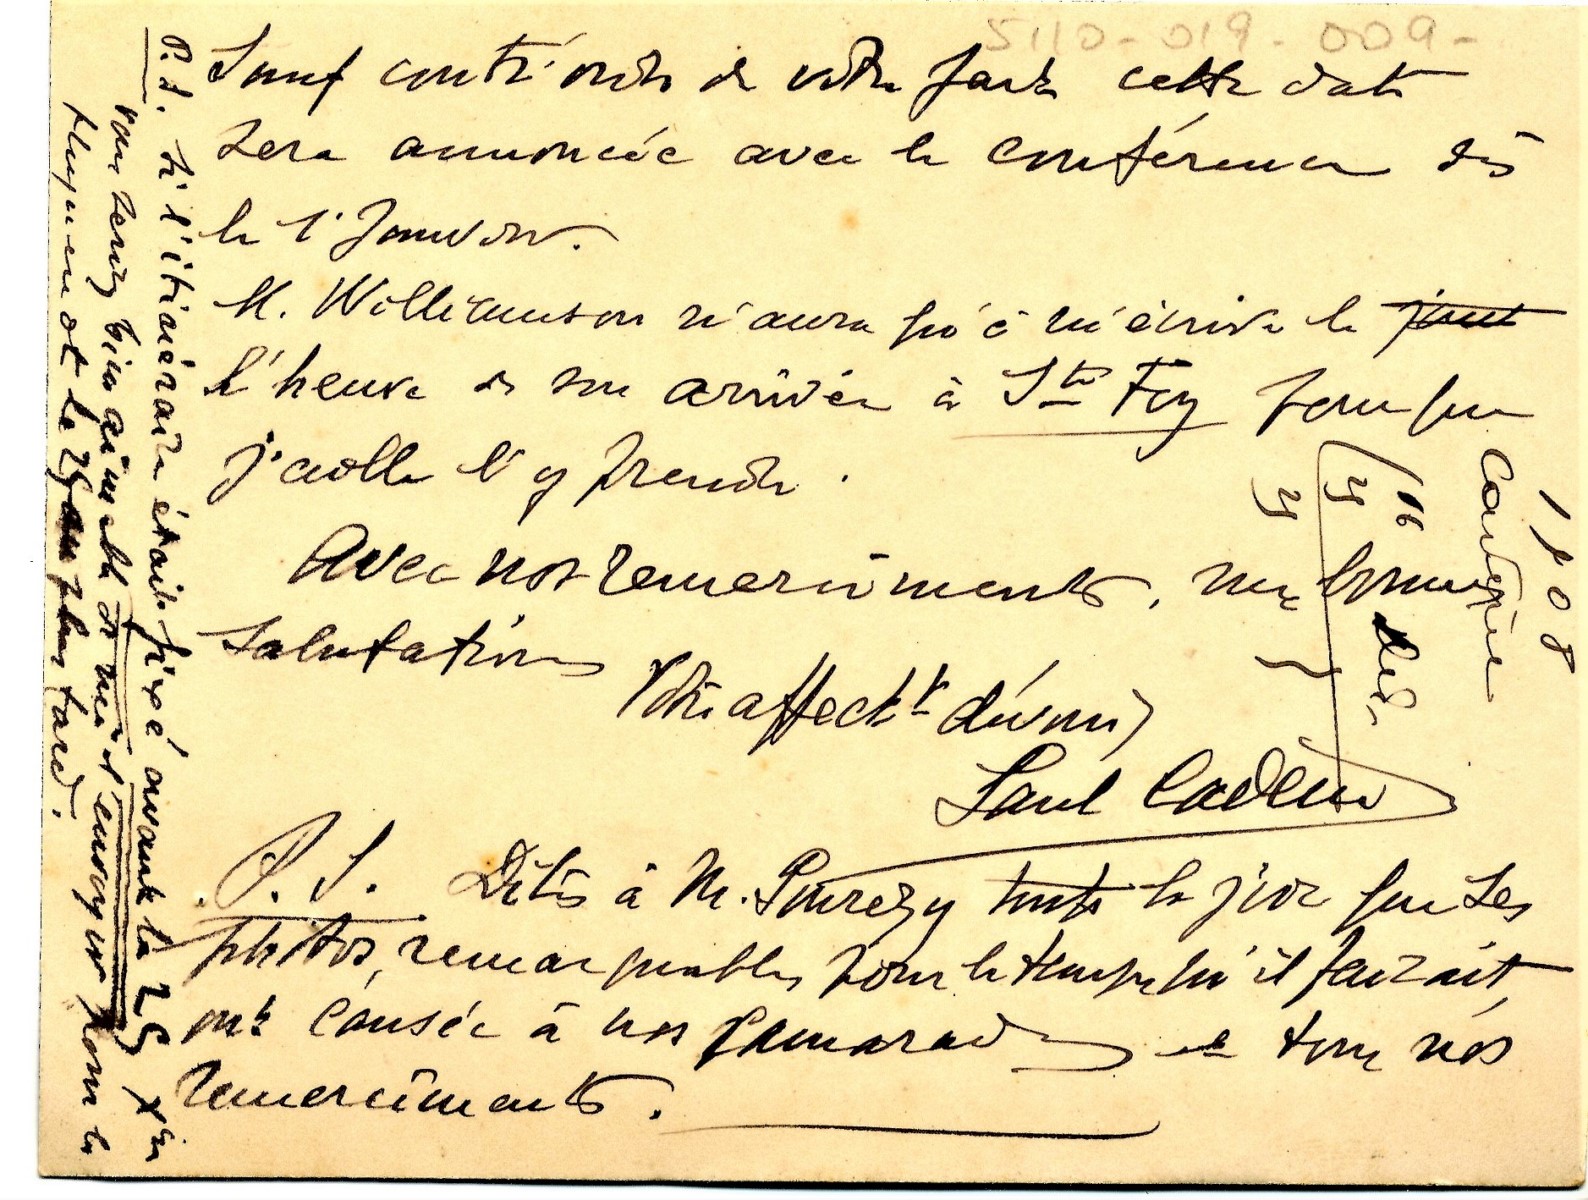 5110-019-009-
Sauf contr'ordre de votre part cette date
sera annoncée avec la conférence dès
le 1r Janvier.
M. Williamson n'aura qu'à m'écrire le jour
l'heure de son arrivée à Ste Foy pour que
j'aille l'y prendre.
Avec nos remerciments, mes bonnes
salutations
Votre affectt dévoué
Paul Cadène
P.S. Dites à M. Pourézy toute la joie que ses
photos, remarquables pour le temps qu'il faisait,
ont causée à nos camarades et tous nos
remerciments.
P.S. si l'itinéraire était fixé avant le 25 Xbre
vous seriez bien aimable de me l'envoyer pour le
le 25 au plus tard.
1908
16 Déc.